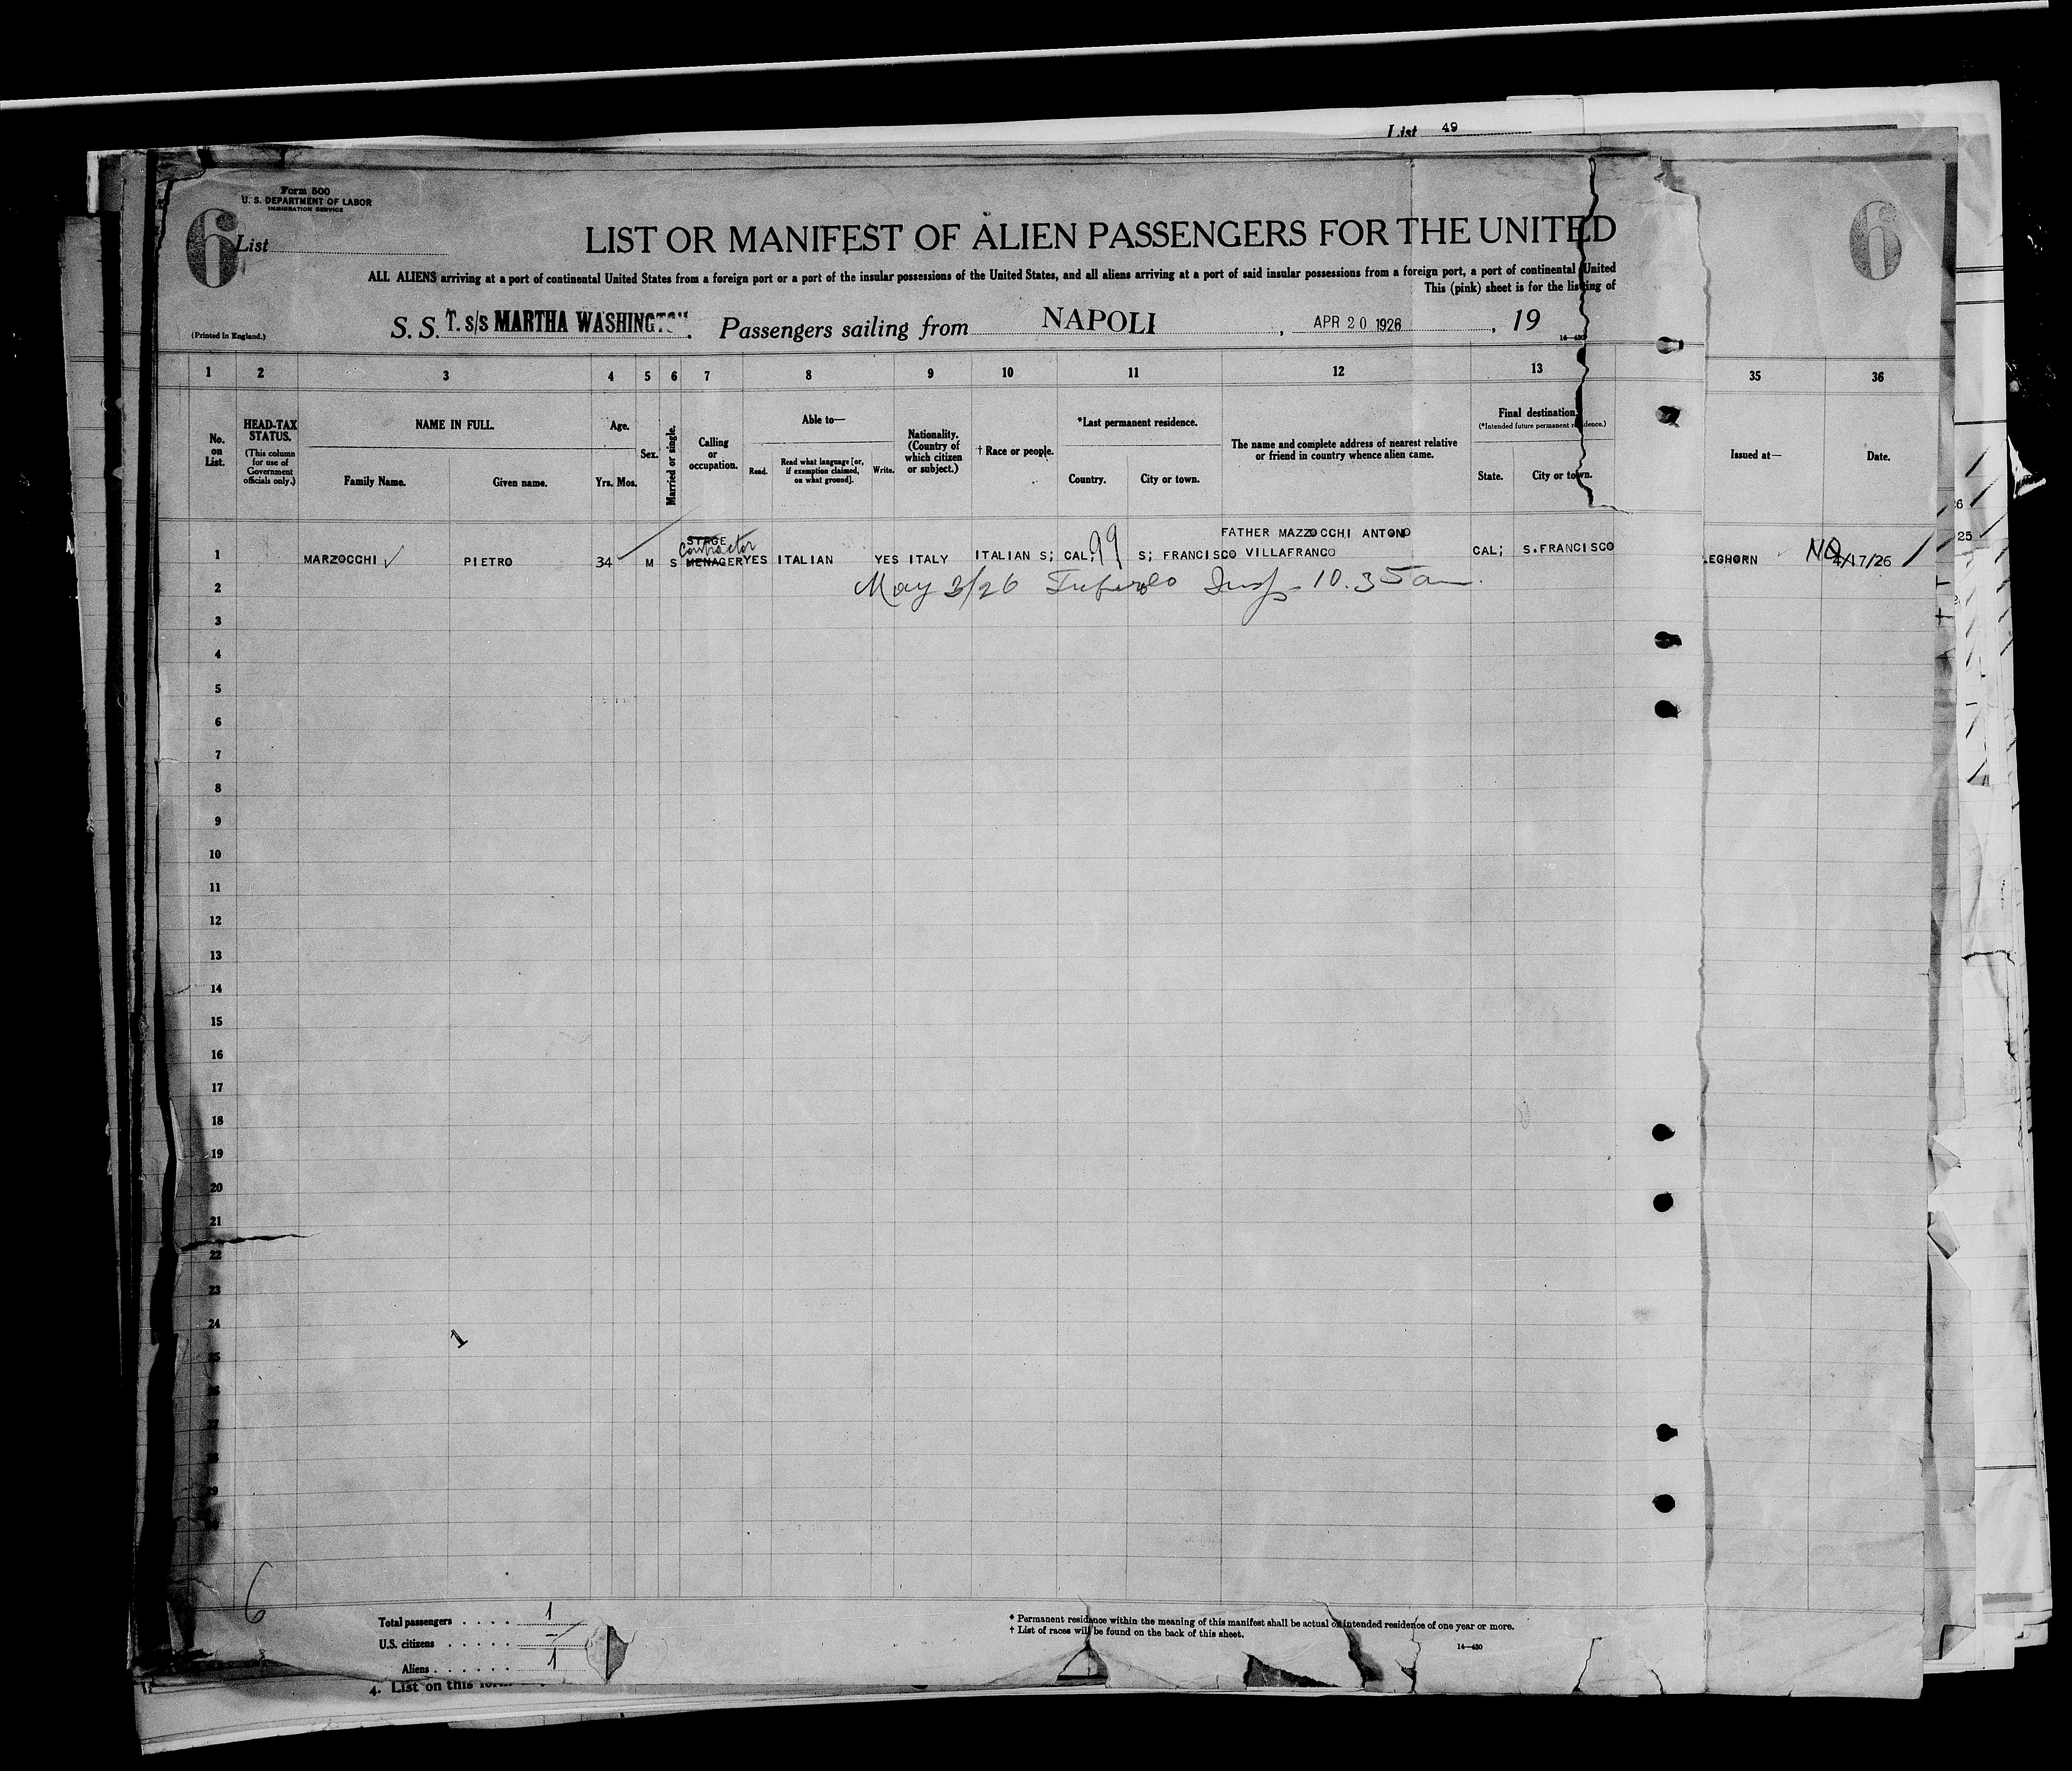 List 49
Form 500
U. S. DEPARTMENT OF LABOR
IMMIGRATION SERVICE
6
List
6
LIST OR MANIFEST OF ALIEN PASSENGERS FOR THE UNITED
ALL ALIENS arriving at a port of continental United States from a foreign port or a port of the insular possessions of the United States, and all aliens arriving at a port of said insular possessions from a foreign port, a port of continental United
This (pink) sheet is for the listing of
(Printed in England.)
S. S. T. s/s MARTHA WASHINGTON. Passengers sailing from NAPOLI, APR 20 1926, 19
14—430
1 2 3 4 5 6 7 8 9 10 11 12 13 35 36
No. on List.
HEAD-TAX STATUS.
(This column for use of Government officials only.)
NAME IN FULL.
Family Name. Given name.
Age.
Yrs. Mos.
Sex.
Married or single.
Calling or occupation.
Able to—
Read. Read what language [or, if exemption claimed, on what ground]. Write.
Nationality. (Country of which citizen or subject.)
† Race or people.
*Last permanent residence.
Country. City or town.
The name and complete address of nearest relative or friend in country whence alien came.
Final destination.
(*Intended future permanent residence.)
State. City or town.
Issued at—
Date.
STAGE FATHER MAZZOCCHI ANTONO
contractor
1 MARZOCCHI PIETRO 34 M S MENAGER YES ITALIAN YES ITALY ITALIAN S; CAL; 99 S; FRANCISCO VILLAFRANCO CAL; S.FRANCISCO LEGHORN NQ 4/17/26
2 May 3/26 Insp 10.35 am.
3
4
5
6
7
8
9
10
11
12
13
14
15
16
17
18
19
20
21
22
23
24
1
25
6
Total passengers . . . . . 1
U.S. citizens . . . . . . —
Aliens . . . . . . 1
* Permanent residence within the meaning of this manifest shall be actual or intended residence of one year or more.
† List of races will be found on the back of this sheet.
14—430
4. List on this form